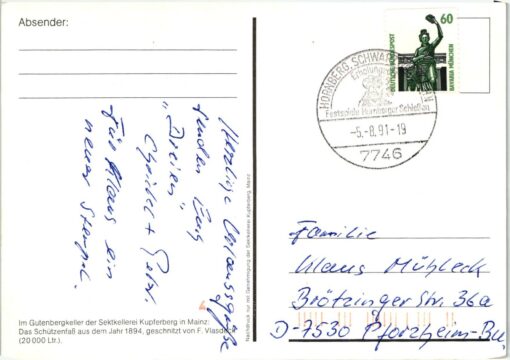 Absender:
Herzliche Urlaubsgrüße
senden Euch
"Dreien"
Christel + Peter.
Für Klaus ein
neuer Stempel.
Im Gutenbergkeller der Sektkellerei Kupferberg in Mainz:
Das Schützenfaß aus dem Jahr 1894, geschnitzt von F. Vlasdeck
(20 000 Ltr.).
Nachdruck nur mit Genehmigung der Sektkellerei Kupferberg, Mainz
60
DEUTSCHE BUNDESPOST
BAVARIA MÜNCHEN
HORNBERG, SCHWARZW
Erholungsort
Festspiele Hornberger Schießen
-5.-8.91-19
7746
Familie
Klaus Mühleck
Brötzinger Str. 36a
D-7530 Pforzheim-Bü